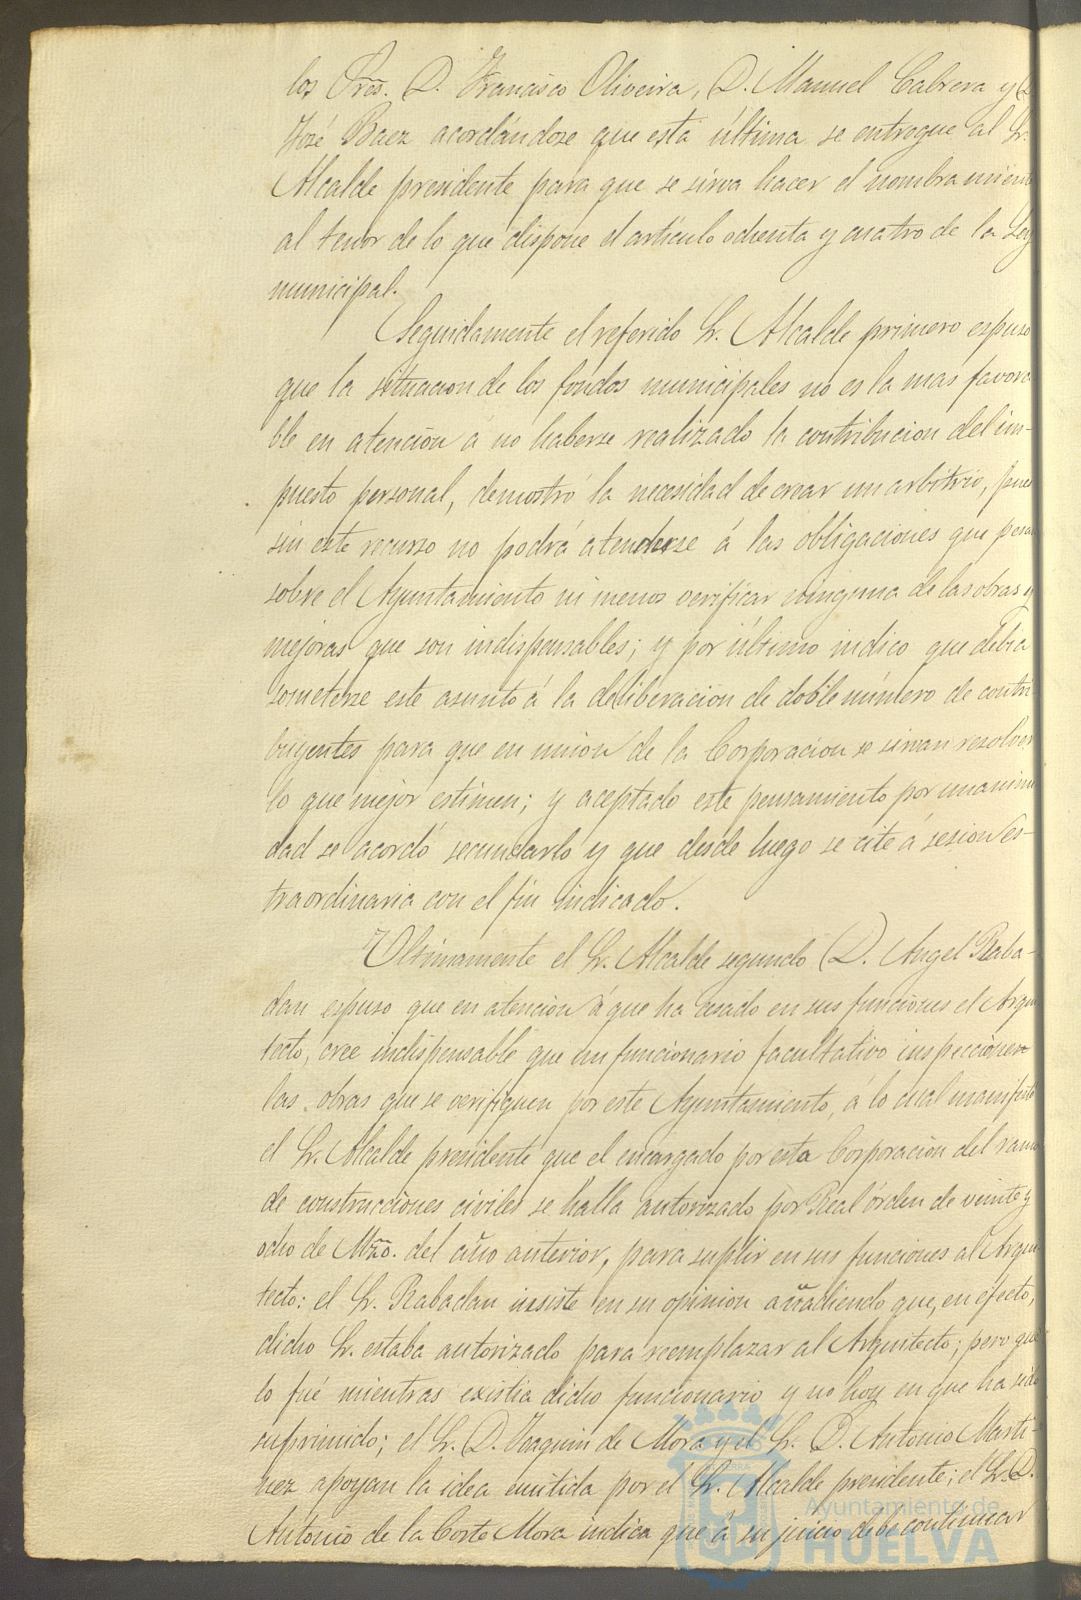 los Sres. D. Francisco Oliveira, D. Manuel Cabrera y D.
José Baez acordándose que esta última se entregue al Sr.
Alcalde presidente para que se sirva hacer el nombramien
al tenor de lo que dispone el artículo ochenta y cuatro de la Ley
municipal.
Seguidamente el referido Sr. Alcalde primero espuso
que la situacion de los fondos municipales no es la mas favora
ble en atencion a no haberse realizado la contribucion del im-
puesto personal, demostró la necesidad de crear un arbitrio, pues
sin este recurso no podrá atenderse á las obligaciones que pesan
sobre el Ayuntamiento ni menos verificar ninguna de las obras y
mejoras que son indispensables; y por último indico que debia
someterse este asunto á la deliberacion de doble número de contri
buyentes para que en union de la Corporacion se sirvan resolver
lo que mejor estimen; y aceptado este pensamiento por unanimi
dad se acordó secundarlo y que desde luego se cite á sesion es-
traordinaria con el fin indicado.
Ultimamente el Sr. Alcalde segundo D. Angel Raba-
dan espuso que en atencion á que ha cesado en sus funciones el Arqui
tecto, cree indispensable que un funcionario facultativo inspeccionen
las obras que se verifiquen por este Ayuntamiento, á lo cual manifestó
el Sr. Alcalde presidente que el encargado por esta Corporacion del ramo
de construcciones civiles se halla autorizado por Real órden de veinte y
ocho de Mzo. del año anterior, para suplir en sus funciones al Arqui
tecto: el Sr. Rabadan insiste en su opinion añadiendo que, en efecto,
dicho Sr. estaba autorizado para reemplazar al Arquitecto; pero que
lo fué mientras existia dicho funcionario y no hoy en que ha sido
suprimido; el Sr. D. Joaquin de Mora y el Sr. D. Antonio Marti-
nez apoyan la idea emitida por el Sr. Alcalde presidente; el Sr. D.
Antonio de la Corte Mora indica que á su juicio debe continuar
Ayuntamiento de
HUELVA